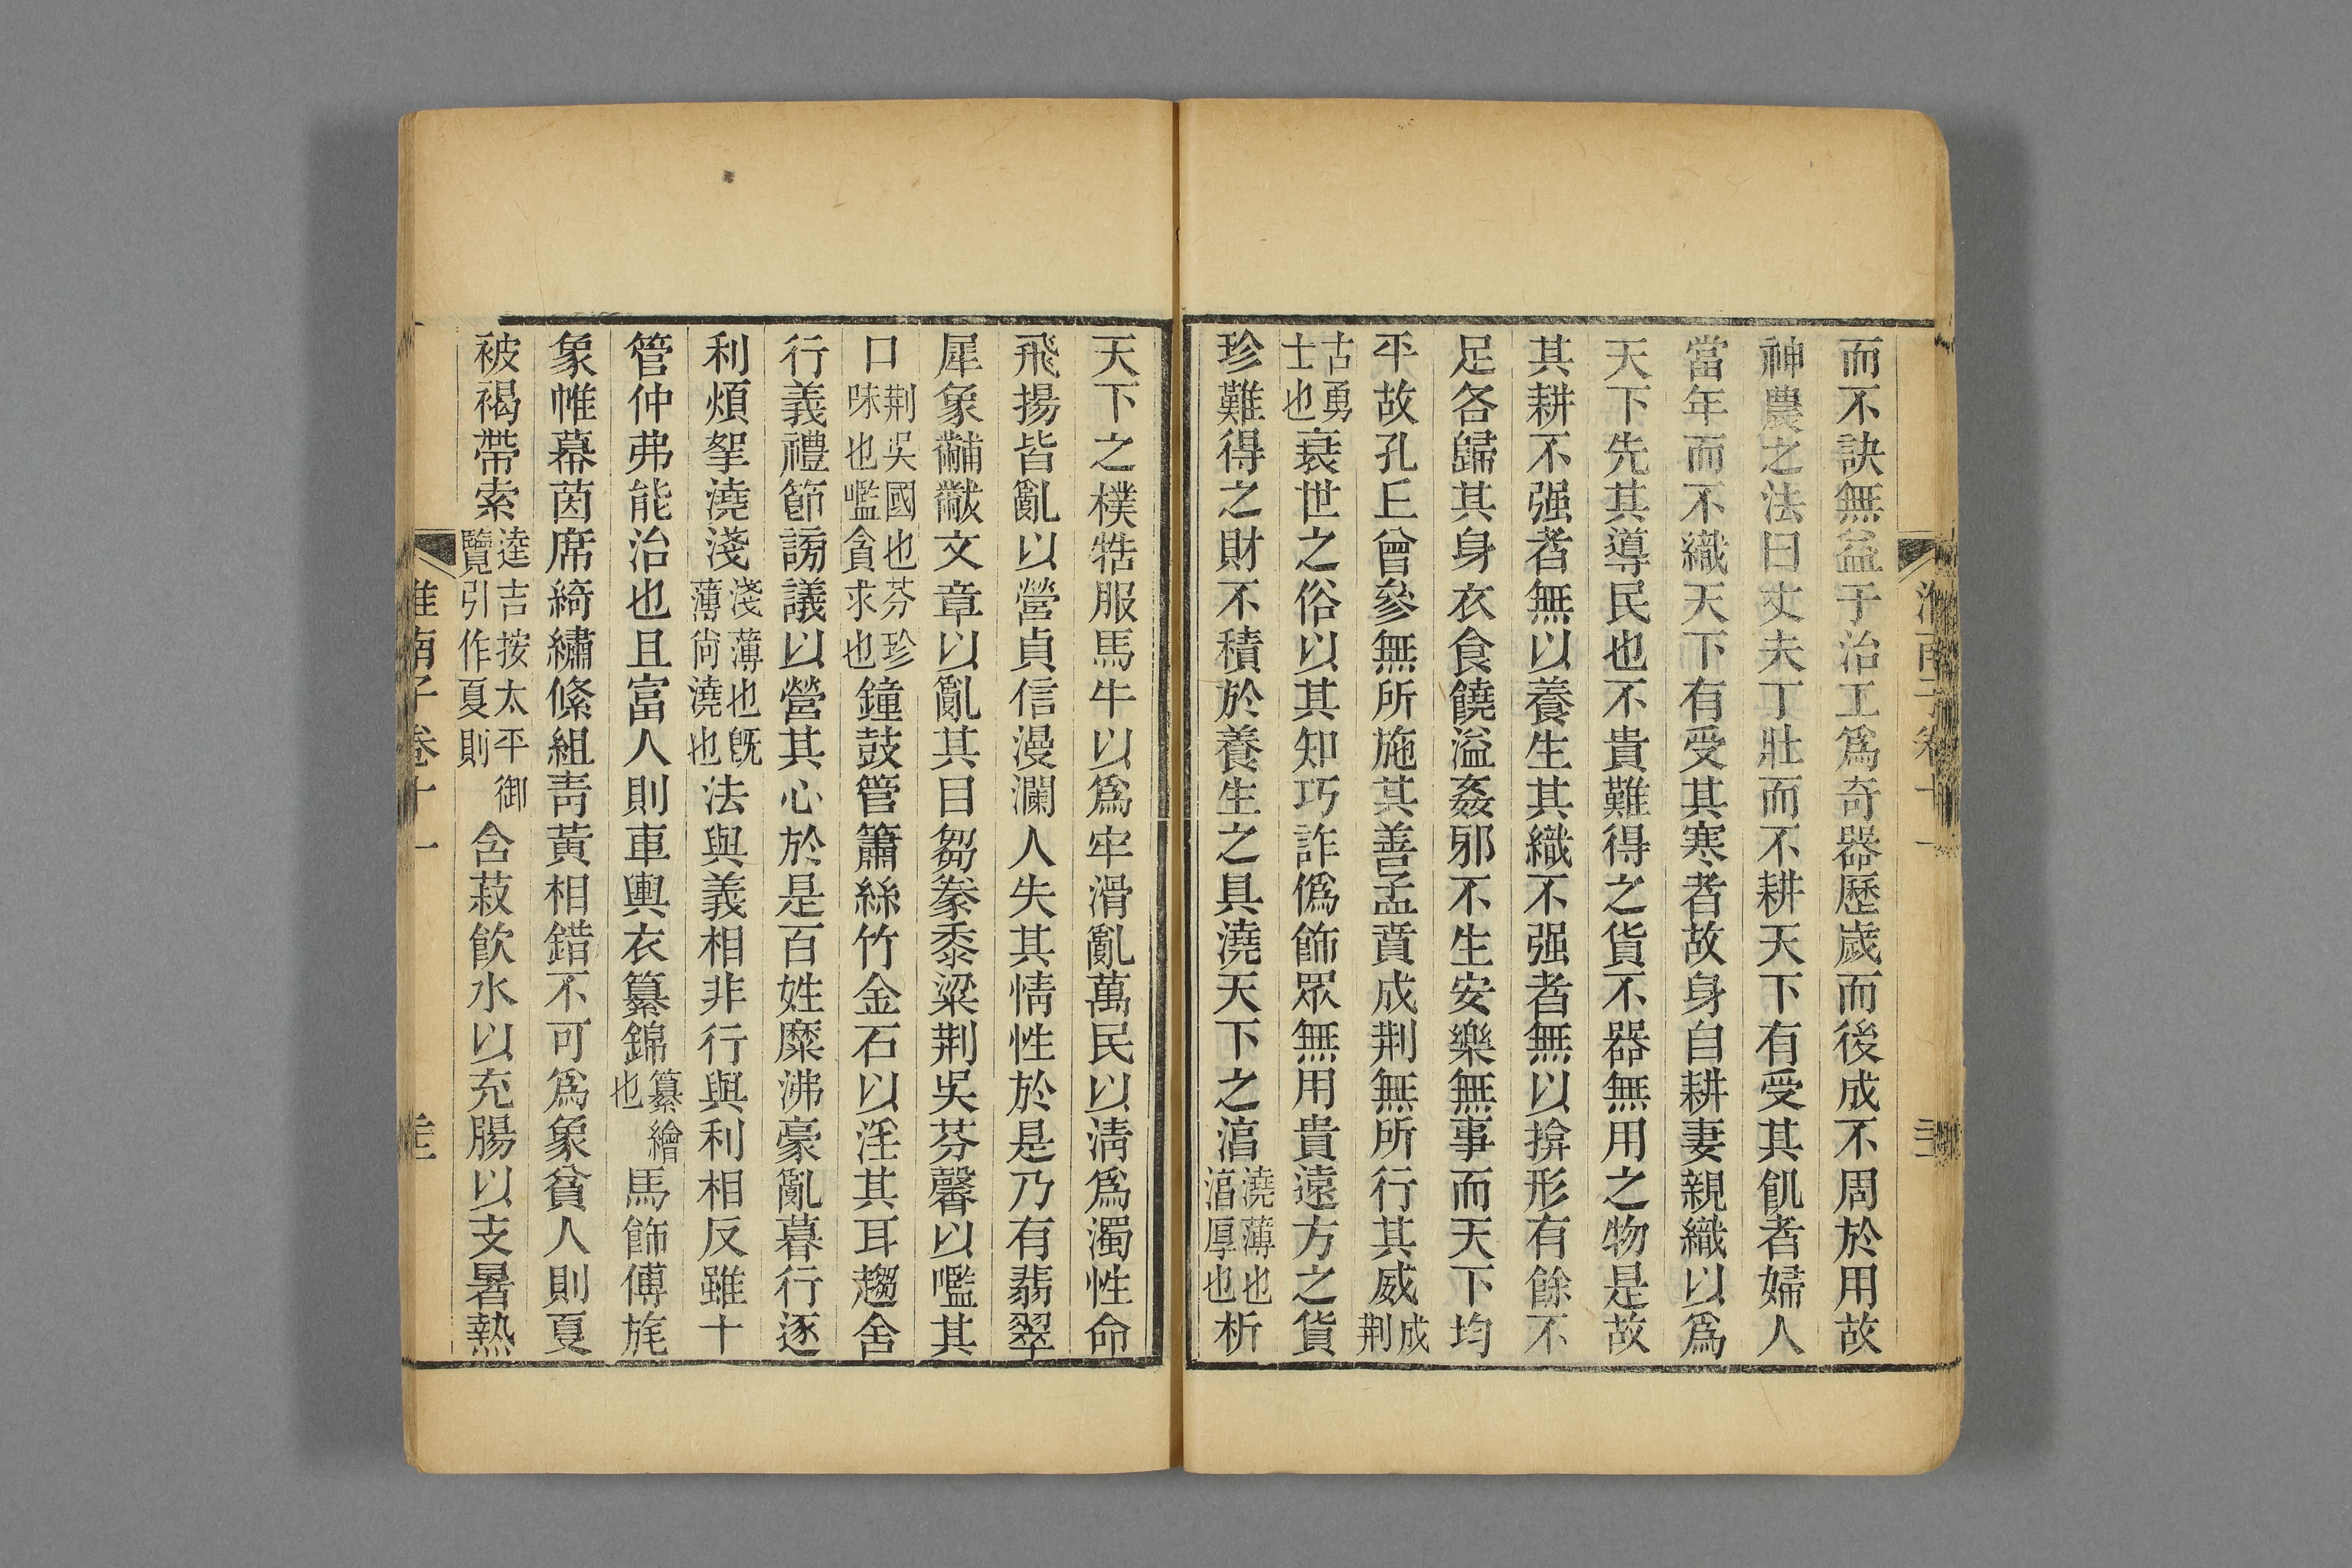 而不訣無益于治工爲奇器歷歲而後成不周於用故
神農之法曰丈夫丁壯而不耕天下有受其飢者婦人
當年而不織天下有受其寒者故身自耕妻親織以爲
天下先其導民也不貴難得之貨不器無用之物是故
其耕不强者無以養生其織不强者無以揜形有餘不
足各歸其身衣食饒溢姦邪不生安樂無事而天下均
平故孔丘曾參無所施其善孟賁成荆無所行其威成荆
古勇士也衰世之俗以其知巧詐僞飾眾無用貴遠方之貨
珍難得之財不積於養生之具澆天下之湻澆薄也湻厚也析
天下之樸牿服馬牛以爲牢滑亂萬民以淸爲濁性命
飛揚皆亂以營貞信漫瀾人失其情性於是乃有翡翠
犀象黼黻文章以亂其目芻豢黍粱荆吳芬馨以嚂其
口荆吳國也芬珍味也嚂貪求也鐘鼓管簫絲竹金石以淫其耳趨舍
行義禮節謗議以營其心於是百姓糜沸豪亂暮行逐
利煩挐澆淺淺薄也旣薄尙澆也法與義相非行與利相反雖十
管仲弗能治也且富人則車輿衣纂錦纂繪也馬飾傅旄
象帷幕茵席綺繡絛組靑黃相錯不可爲象貧人則夏
被褐帶索逵吉按太平御覽引作夏則含菽飮水以充腸以支暑熱
淮南子卷十一